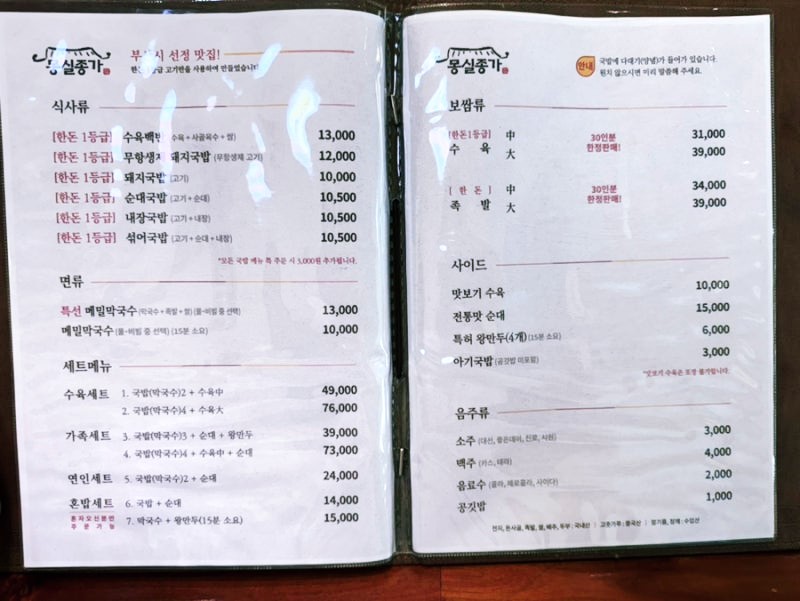 몽실종가
부 시 선정 맛집!
한돈 등급 고기만을 사용하여 만들었습니다
식사류
[한돈 1등급] 수육백반 (수육 + 사골육수 + 쌈) 13,000
[한돈 1등급] 무항생제 돼지국밥 (무항생제 고기) 12,000
[한돈 1등급] 돼지국밥 (고기) 10,000
[한돈 1등급] 순대국밥 (고기 + 순대) 10,500
[한돈 1등급] 내장국밥 (고기 + 내장) 10,500
[한돈 1등급] 섞어국밥 (고기 + 순대 + 내장) 10,500
*모든 국밥 메뉴 특 주문 시 3,000원 추가됩니다.
면류
특선 메밀막국수 (막국수 + 족발 + 쌈) (물·비빔 중 선택) 13,000
메밀막국수 (물·비빔 중 선택) (15분 소요) 10,000
세트메뉴
수육세트 1. 국밥(막국수)2 + 수육中 49,000
2. 국밥(막국수)4 + 수육大 76,000
가족세트 3. 국밥(막국수)3 + 순대 + 왕만두 39,000
4. 국밥(막국수)4 + 수육中 + 순대 73,000
연인세트 5. 국밥(막국수)2 + 순대 24,000
혼밥세트 6. 국밥 + 순대 14,000
혼자오신분만
주문가능 7. 막국수 + 왕만두(15분 소요) 15,000
몽실종가
안내
국밥에 다대기(양념)가 들어가 있습니다.
원치 않으시면 미리 말씀해 주세요.
보쌈류
[한돈1등급] 中 30인분 31,000
수육 大 한정판매! 39,000
[한돈] 中 30인분 34,000
족발 大 한정판매! 39,000
사이드
맛보기 수육 10,000
전통맛 순대 15,000
특허 왕만두(4개) (15분 소요) 6,000
아기국밥 (공깃밥 미포함) 3,000
*맛보기 수육은 포장 불가합니다.
음주류
소주 (대선, 좋은데이, 진로, 시원) 3,000
맥주 (카스, 테라) 4,000
음료수 (콜라, 제로콜라, 사이다) 2,000
공깃밥 1,000
돈사골, 족발, 쌀, 배추, 두부 : 국내산 | 고춧가루 : 중국산 | 참기름, 참깨 : 수입산